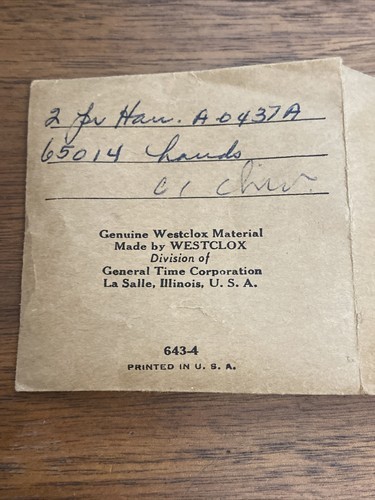 2 pr Han. A0437A
65014 hands
Genuine Westclox Material
Made by WESTCLOX
Division of
General Time Corporation
La Salle, Illinois, U. S. A.
643-4
PRINTED IN U. S. A.